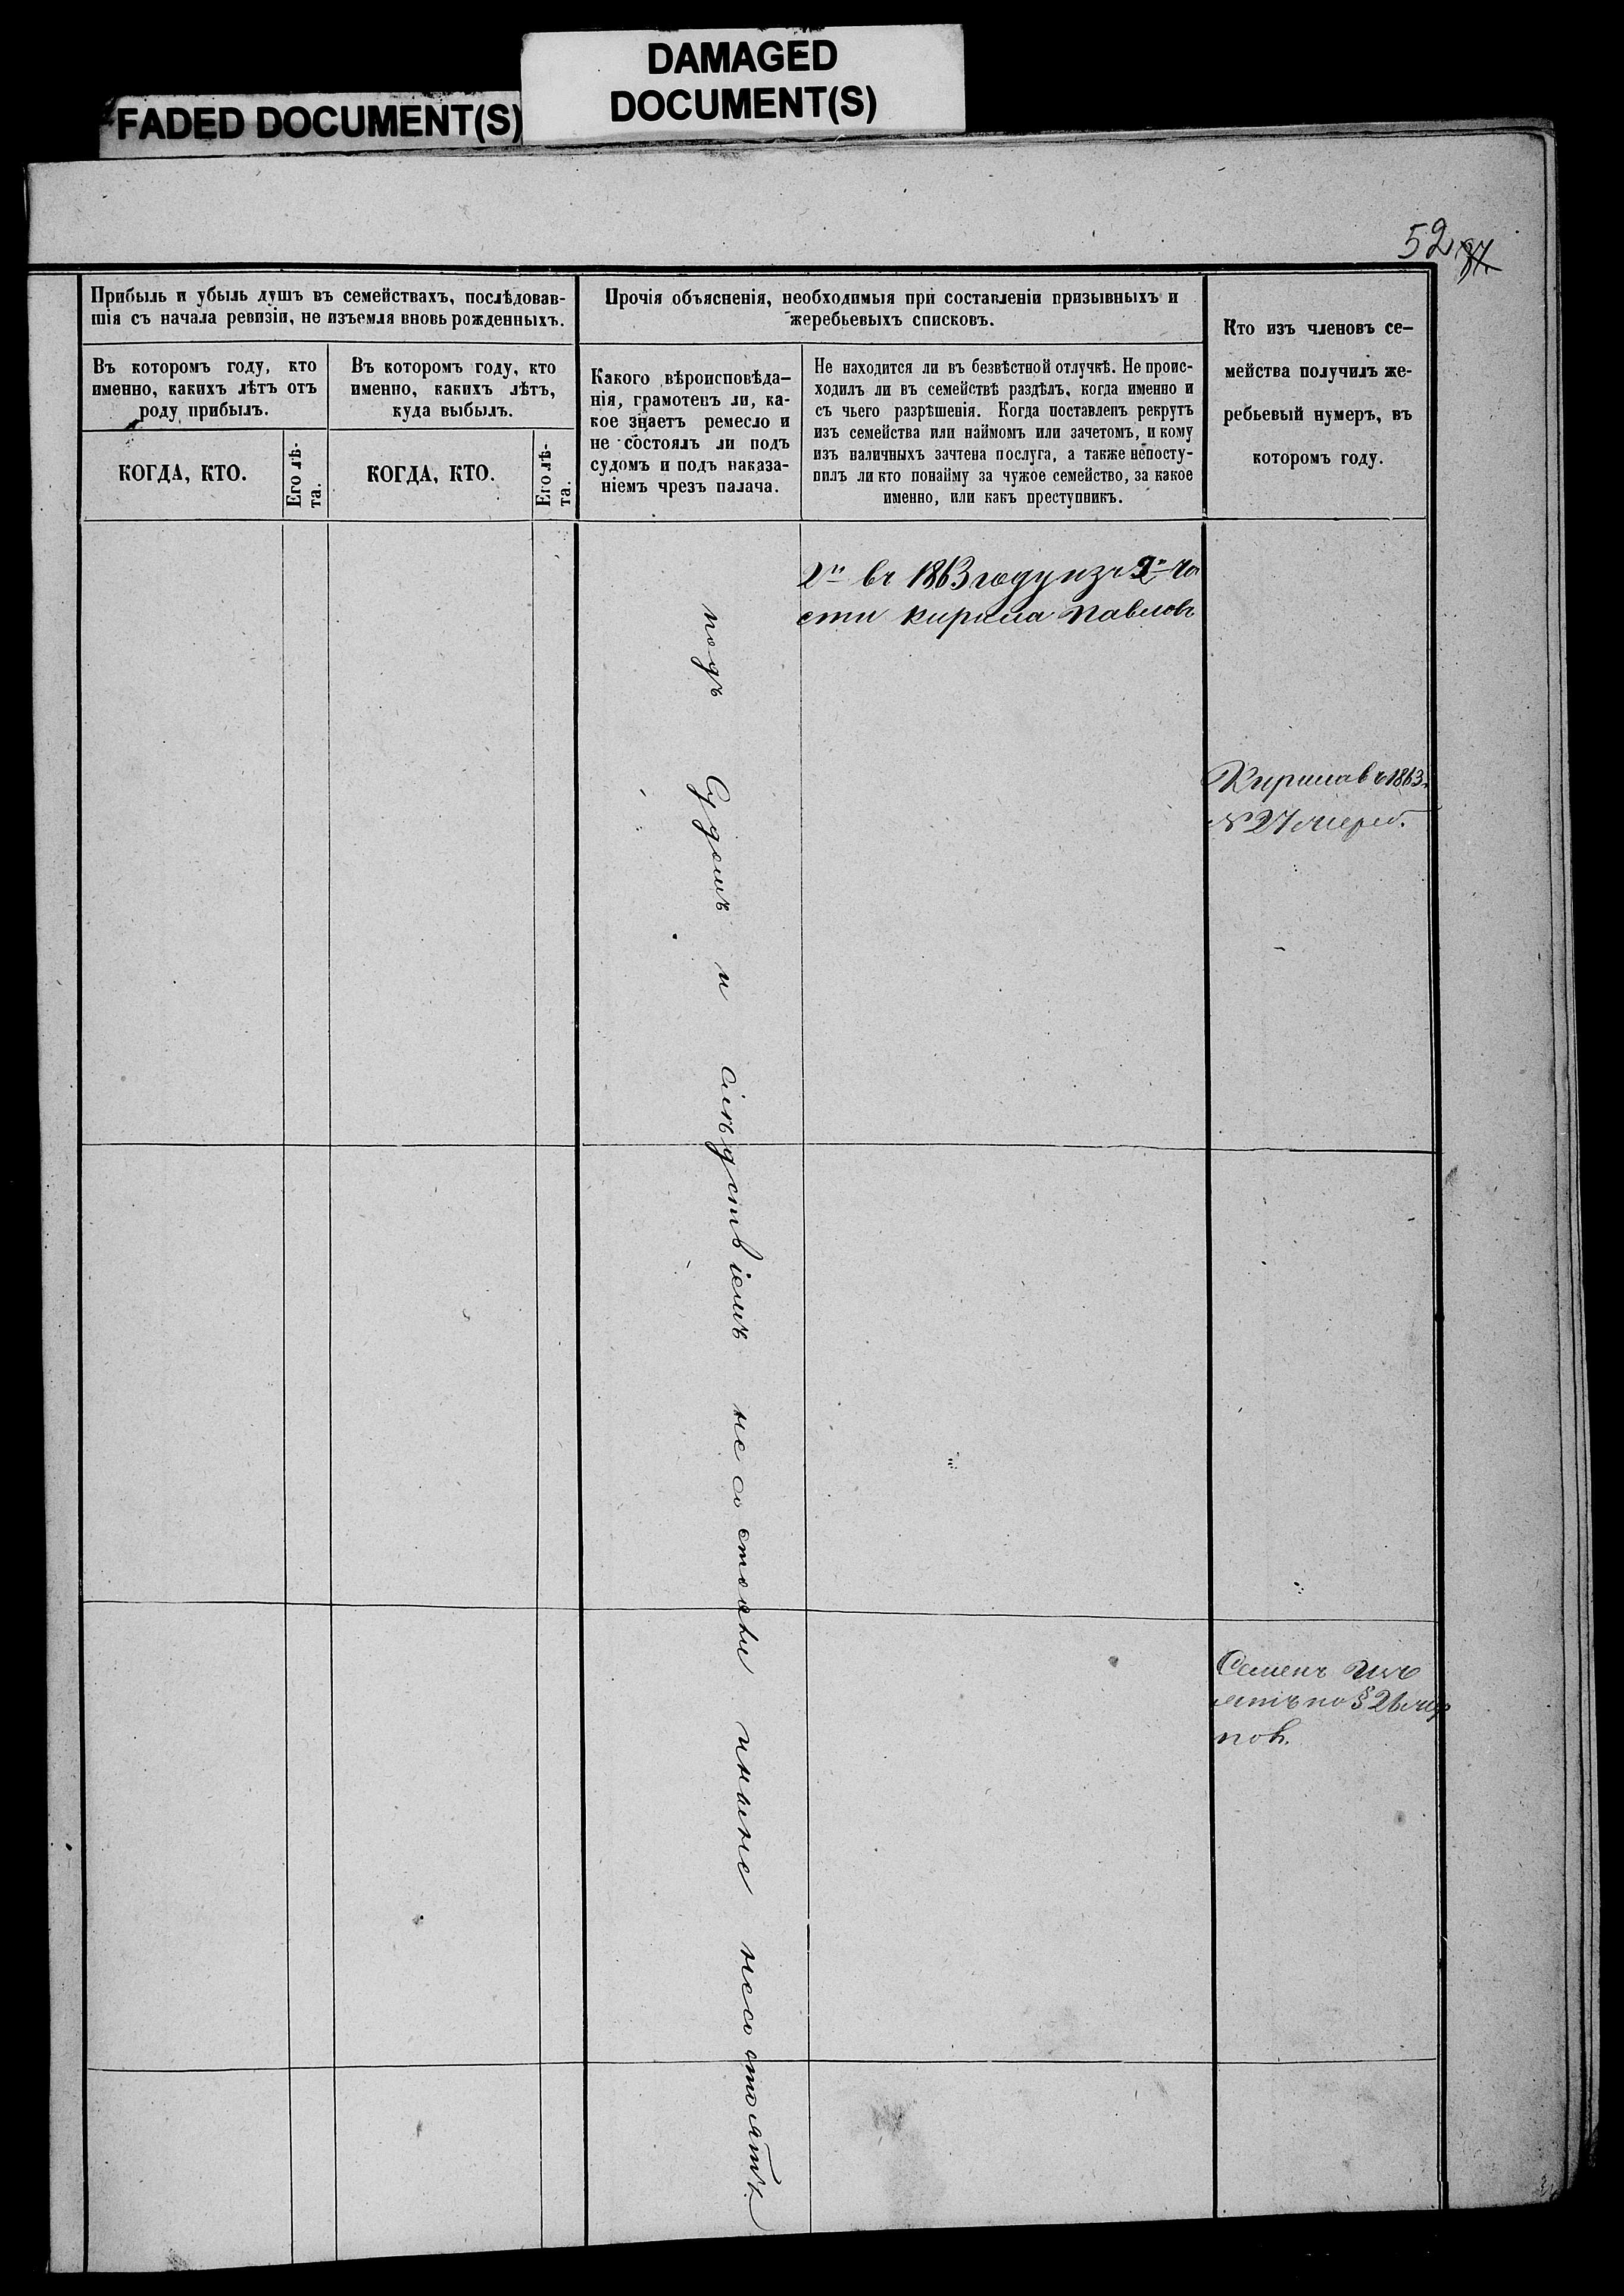 FADED DOCUMENT(S)
DAMAGED
DOCUMENT(S)
52
Прибыль и убыль душъ въ семействахъ, послѣдовав-
шія съ начала ревизіи, не изъемля вновь рожденныхъ.
Въ котором году, кто
именно, какихъ лѣтъ отъ
роду прибылъ.
Въ котором году, кто
именно, какихъ лѣтъ,
куда выбылъ.
КОГДА, КТО.
Его лѣ-
та.
КОГДА, КТО.
Его лѣ-
та.
Прочія объясненія, необходимыя при составленіи призывныхъ и
жеребьевыхъ списковъ.
Какого вѣроисповѣда-
нія, грамотенъ ли, ка-
кое знаетъ ремесло и
не состоялъ ли подъ
судомъ и подъ наказа-
ніемъ чрезъ палача.
Не находится ли въ безвѣстной отлучкѣ. Не проис-
ходилъ ли въ семействѣ раздѣлъ, когда именно и
съ чьего разрѣшенія. Когда поставленъ рекрутъ
изъ семейства или наймомъ или зачетомъ, и кому
изъ наличныхъ зачтена послуга, а также непосту-
пилъ ли кто понайму за чужое семейство, за какое
именно, или какъ преступникъ.
Кто изъ членовъ се-
мейства получилъ же-
ребьевый нумеръ, въ
которомъ году.
подъ Судомъ и слѣдствіемъ не состояли и ныне не состоятъ
въ 1863 году изъ 2й ча
сти Кирила Павловъ
Кирила въ 1863
№ 27 жереб.
Семенъ
по § 26